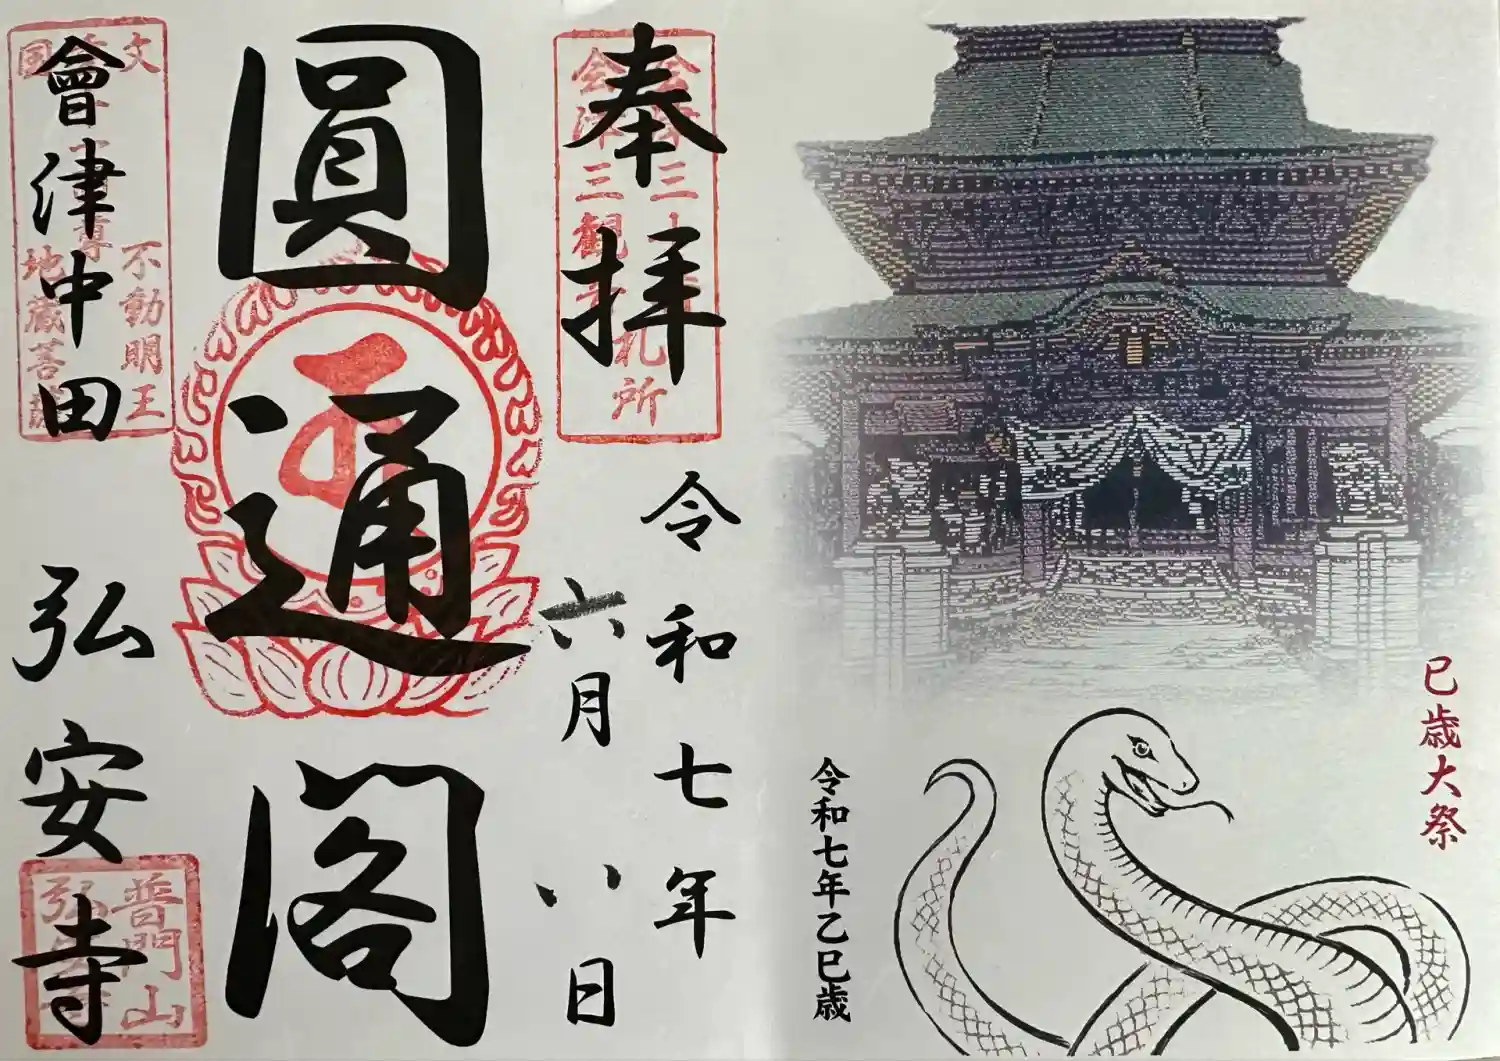 巳歳大祭
令和七年乙巳歳
奉拝
会津三十三観音札所
令和七年
六月八日
圓通閣
會津中田
弘安寺
国
文
不動明王
地蔵菩薩
普門山
弘安寺